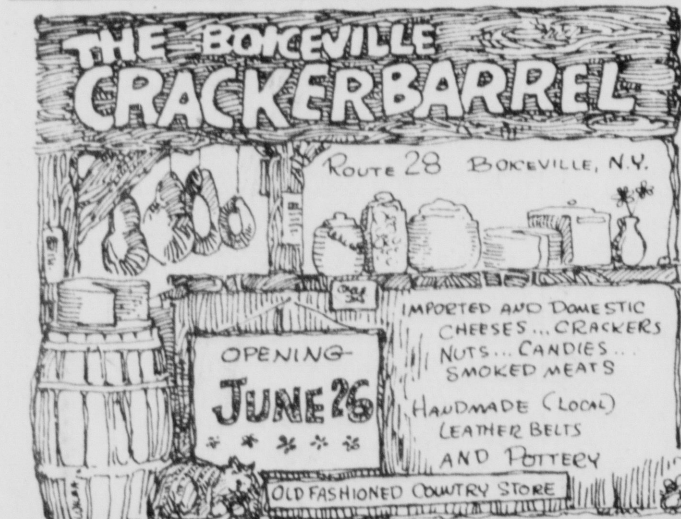 THE BOICEVILLE
CRACKERBARREL
ROUTE 28 BOICEVILLE, N.Y.
OPENING
JUNE 26
IMPORTED AND DOMESTIC
CHEESES... CRACKERS
NUTS... CANDIES...
SMOKED MEATS
HANDMADE (LOCAL)
LEATHER BELTS
AND POTTERY
OLD FASHIONED COUNTRY STORE